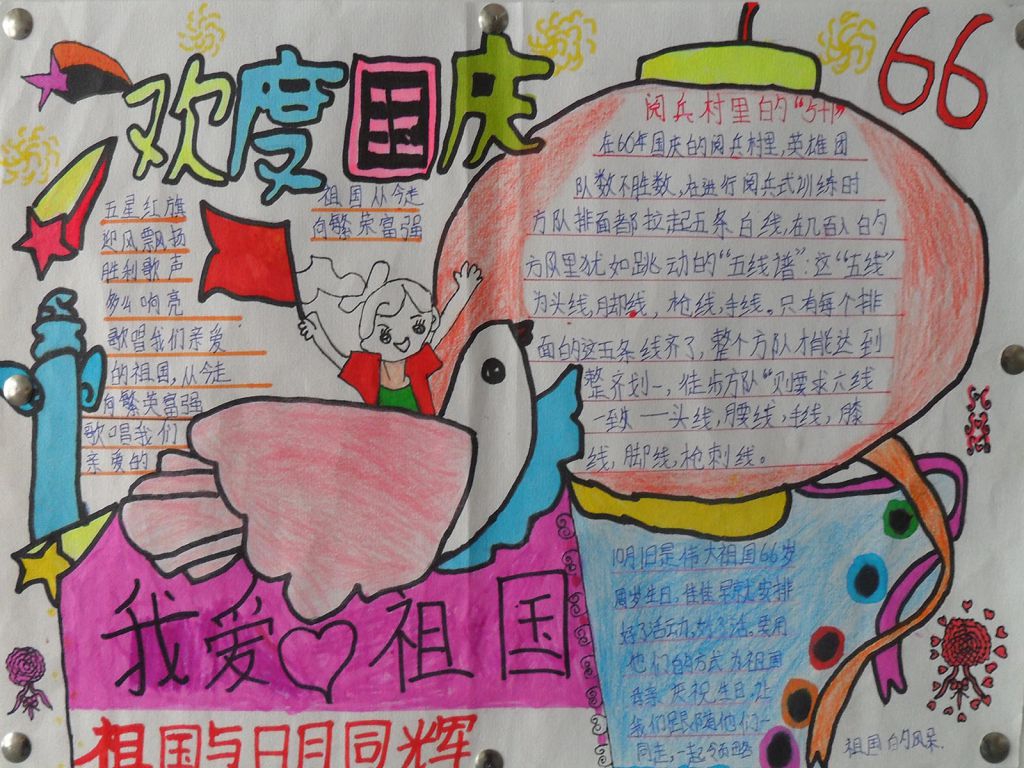 欢度国庆
66
五星红旗
迎风飘扬
胜利歌声
多么响亮
歌唱我们亲爱
的祖国,从今走
向繁荣富强
歌唱我们
亲爱的
祖国从今走
向繁荣富强
阅兵村里的"5+1"
在66年国庆的阅兵村里,英雄团
队数不胜数,在进行阅兵式训练时
方队排面都拉起五条白线,在几百人的
方队里犹如跳动的"五线谱":这"五线"
为头线,脚线,枪线,手线。只有每个排
面的这五条线齐了,整个方队才能达到
整齐划一,"徒步方队"则要求六线
一致——头线,腰线,手线,膝
线,脚线,枪刺线。
我爱祖国
祖国与日月同辉
10月1日是伟大祖国66岁
周岁生日,佳佳早就安排
好了活动,
他们的方式为祖国
母亲庆祝生日,让
我们跟随他们一
同走,一起领略
祖国的风采.